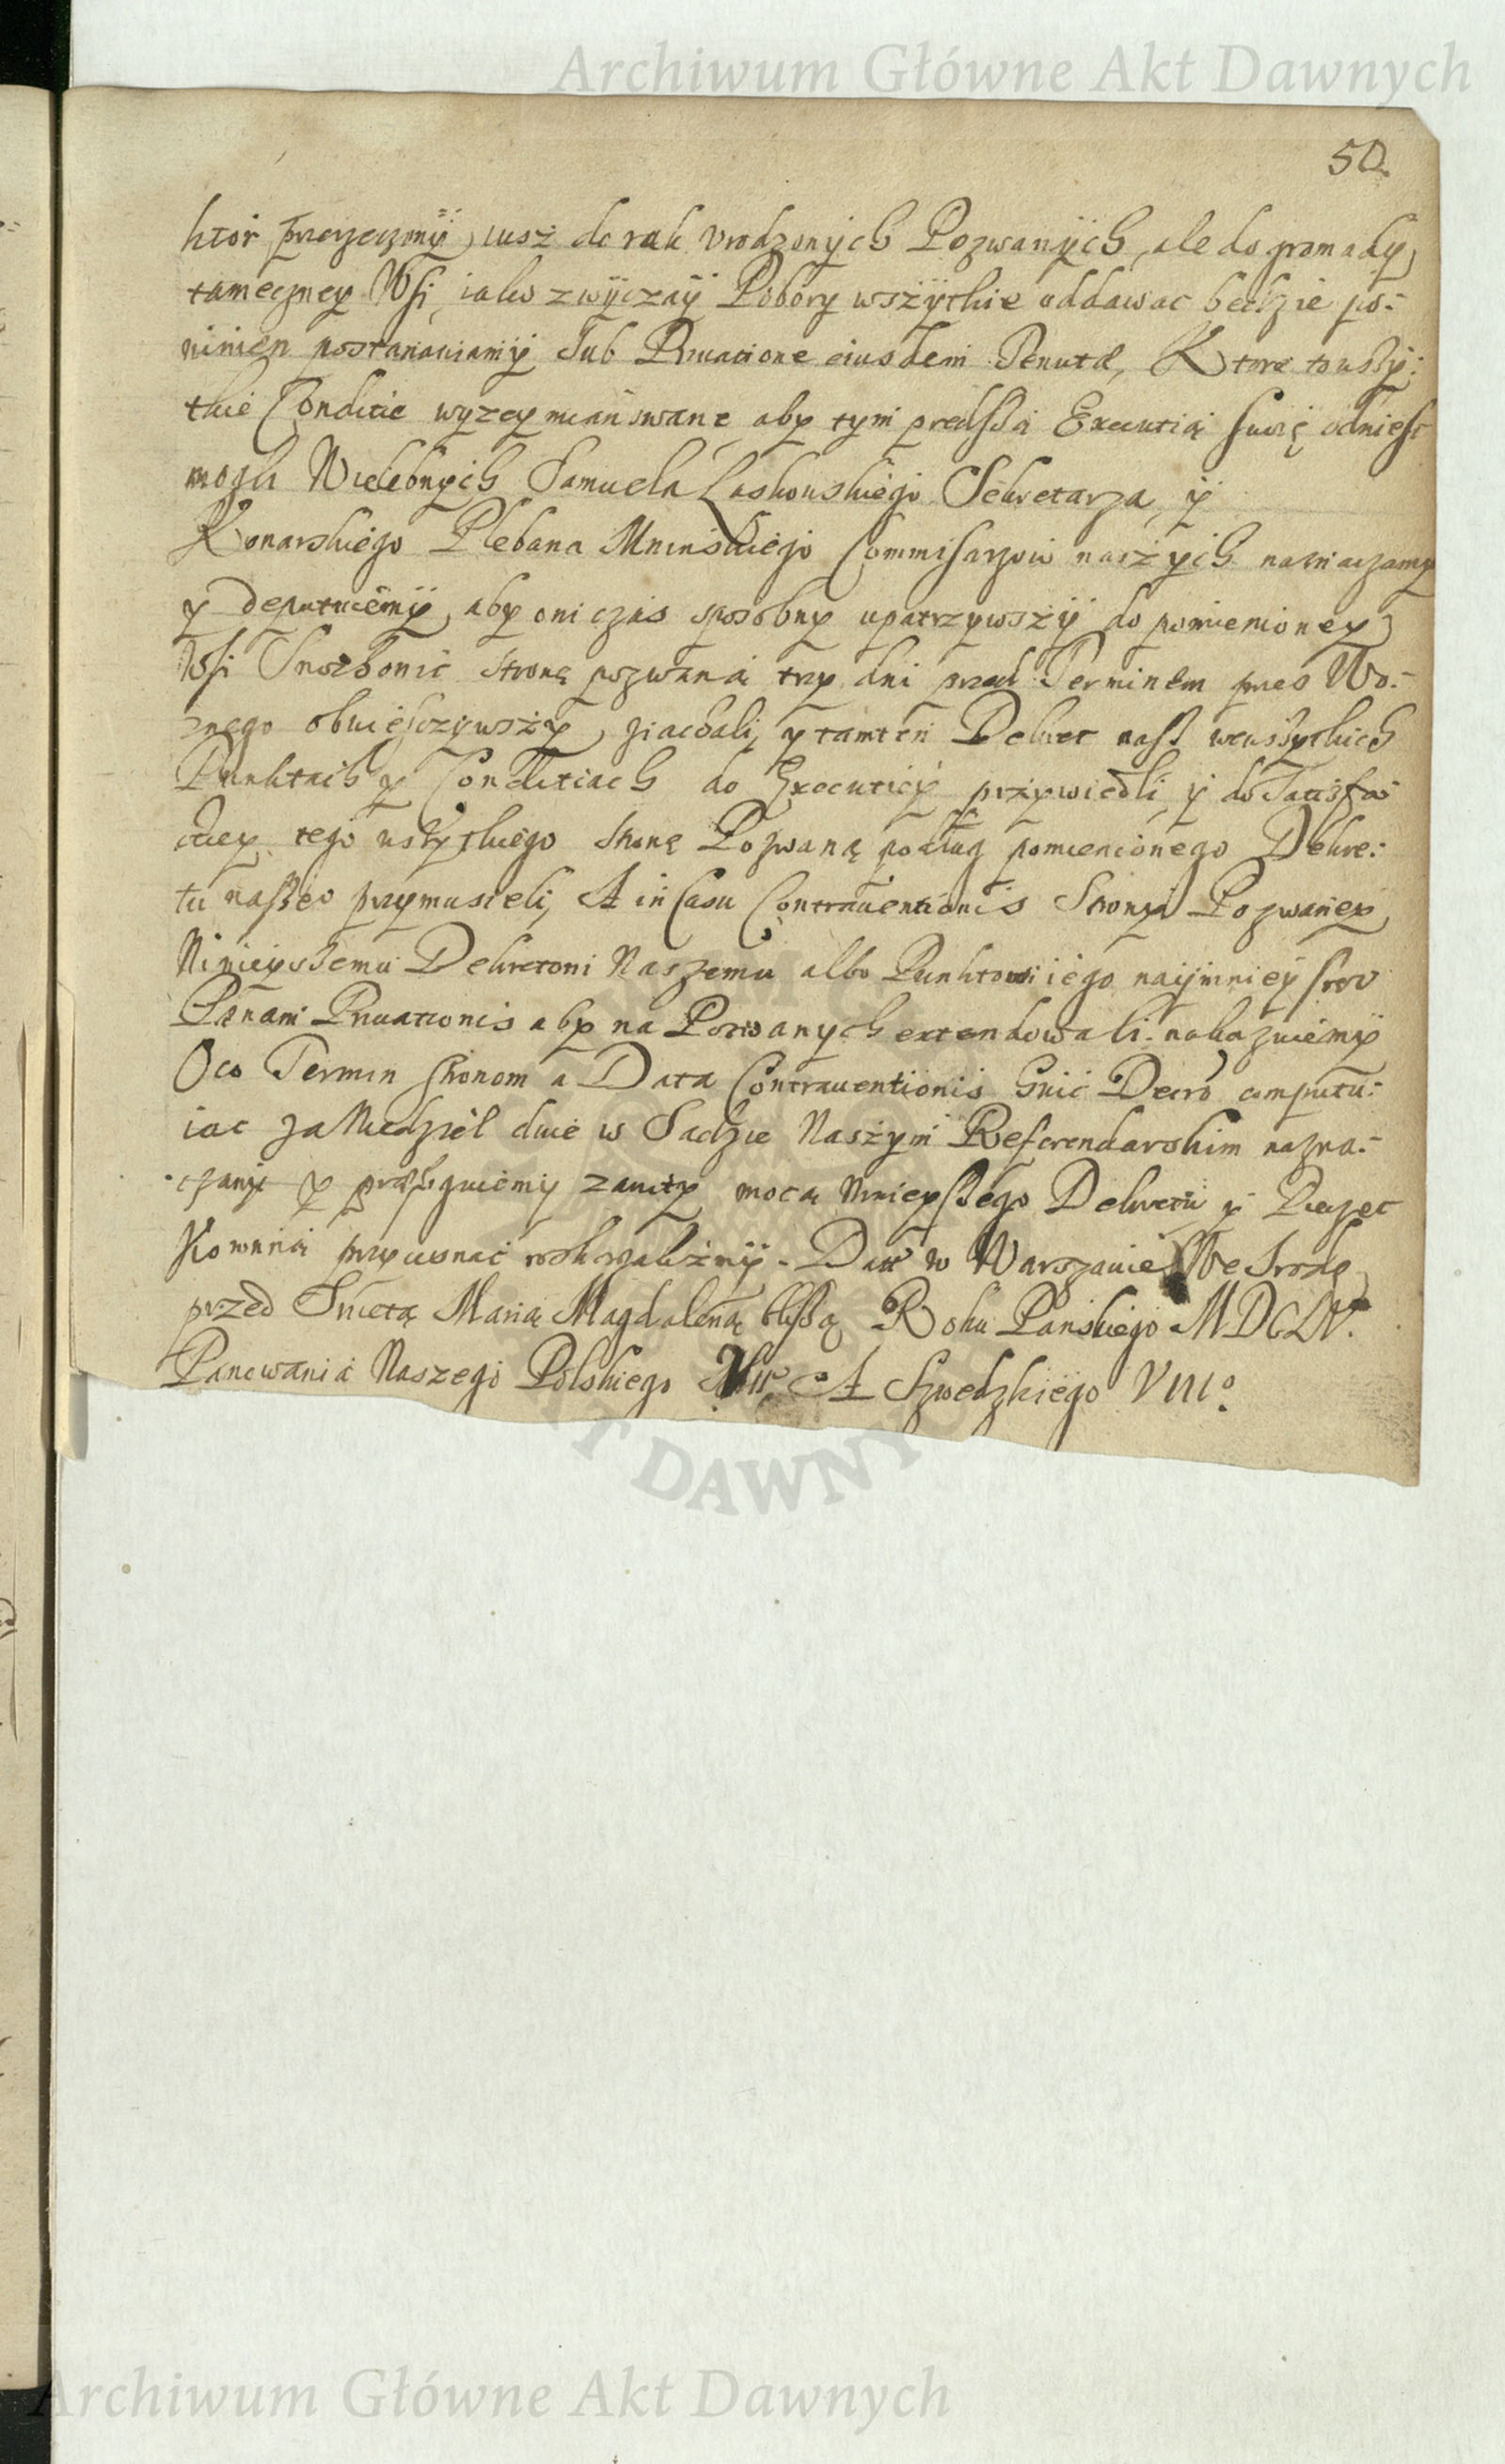 Archiwum Główne Akt Dawnych
50.
ktor przerzeczony, iusz do rak Vrodzonych Pozwanych, ale do gromady
tameczney Wsi, iako zwyczay Pobory wszytkie oddawac bedzie po-
winien postanawiamy Sub Priuatione eiusdem Tenutæ, Ktore to wszy-
tkie Conditie wyzey mianowane aby tym predsza Executią swoię odniesc
mogli Wielebnych Samuela Laskowskiego Sekretarza, y
Konarskiego Plebana Mninskiego Commisarzow naszych naznaczamy
y deputuiemy, aby oni czas sposobny upatrzywszy do pomienioney
Wsi stronę pozwaną trzy dni przed Terminem przes Wo-
znego obwiesczywszy, ziachali, y tamten Dekret nasz we wszytkich
Punktach y Conditiach do Executiey przywiedli y do Satisfac
ctiey tego wszytkiego stronę Pozwaną podług pomienionego Dekre-
tu naszeo przymusieli, A in Casu Contrauentionis Strony Pozwaney
Ninieyszemu Dekretoni Naszemu albo Punktowi iego naymniey
Pænam Priuationis aby na Pozwanych extendowali. nakazuiemy
Oco Termin stronom a Data Contrauentionis huic Decro computu-
iac za Niedziel dwie w Sadzie Naszym Referendarskim nazna-
czamy y zawity mocą Ninieyszego Dekretu y Pieczec
Koronną przycisnąć roskazalismy. Dan w Warszawie We Srodę
przed Swietą Marią Magdaleną bliszą Roku Panskiego MDCLV.
Panowania Naszego Polskiego A Szwedzkiego VIII°
AKT DAWNYCH
Archiwum Główne Akt Dawnych